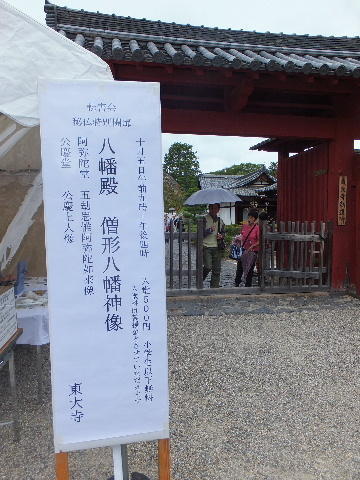 転害会
秘仏特別開扉
十月五日 午前九時~午後四時
入堂料500円 小学生以下無料
八幡殿 僧形八幡神像
阿弥陀堂 五劫思惟阿弥陀如来像
公慶堂 公慶上人像
東大寺